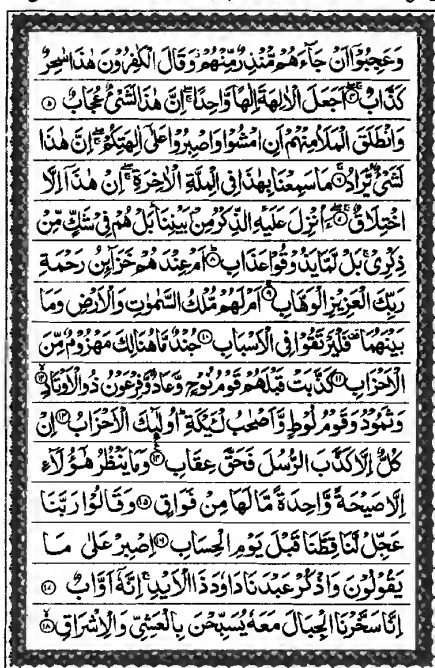 وَعَجِبُوْۤا اَنْ جَآءَهُمْ مُّنْذِرٌ مِّنْهُمْ وَقَالَ الْكٰفِرُوْنَ هٰذَا سٰحِرٌ
كَذَّابٌ ۴ اَجَعَلَ الْاٰلِهَةَ اِلٰهًا وَّاحِدًا اِنَّ هٰذَا لَشَیْءٌ عُجَابٌ ۵
وَانْطَلَقَ الْمَلَاُ مِنْهُمْ اَنِ امْشُوْا وَاصْبِرُوْا عَلٰۤی اٰلِهَتِكُمْ اِنَّ هٰذَا
لَشَیْءٌ یُّرَادُ ۶ مَا سَمِعْنَا بِهٰذَا فِی الْمِلَّةِ الْاٰخِرَةِ اِنْ هٰذَاۤ اِلَّا
اخْتِلَاقٌ ۷ ءَاُنْزِلَ عَلَیْهِ الذِّكْرُ مِنْۢ بَیْنِنَا بَلْ هُمْ فِیْ شَكٍّ مِّنْ
ذِكْرِیْ بَلْ لَّمَّا یَذُوْقُوْا عَذَابِ ۸ اَمْ عِنْدَهُمْ خَزَآئِنُ رَحْمَةِ
رَبِّكَ الْعَزِیْزِ الْوَهَّابِ ۹ اَمْ لَهُمْ مُّلْكُ السَّمٰوٰتِ وَالْاَرْضِ وَمَا
بَیْنَهُمَا فَلْیَرْتَقُوْا فِی الْاَسْبَابِ ۱۰ جُنْدٌ مَّا هُنَالِكَ مَهْزُوْمٌ مِّنَ
الْاَحْزَابِ ۱۱ كَذَّبَتْ قَبْلَهُمْ قَوْمُ نُوْحٍ وَّعَادٌ وَّفِرْعَوْنُ ذُو الْاَوْتَادِ ۱۲
وَثَمُوْدُ وَقَوْمُ لُوْطٍ وَّاَصْحٰبُ لْـَٔیْكَةِ اُولٰٓئِكَ الْاَحْزَابُ ۱۳ اِنْ
كُلٌّ اِلَّا كَذَّبَ الرُّسُلَ فَحَقَّ عِقَابِ ۱۴ وَمَا یَنْظُرُ هٰۤؤُلَآءِ
اِلَّا صَیْحَةً وَّاحِدَةً مَّا لَهَا مِنْ فَوَاقٍ ۱۵ وَقَالُوْا رَبَّنَا
عَجِّلْ لَّنَا قِطَّنَا قَبْلَ یَوْمِ الْحِسَابِ ۱۶ اِصْبِرْ عَلٰی مَا
یَقُوْلُوْنَ وَاذْكُرْ عَبْدَنَا دَاوٗدَ ذَا الْاَیْدِ اِنَّهٗۤ اَوَّابٌ ۱۷
اِنَّا سَخَّرْنَا الْجِبَالَ مَعَهٗ یُسَبِّحْنَ بِالْعَشِیِّ وَالْاِشْرَاقِ ۱۸